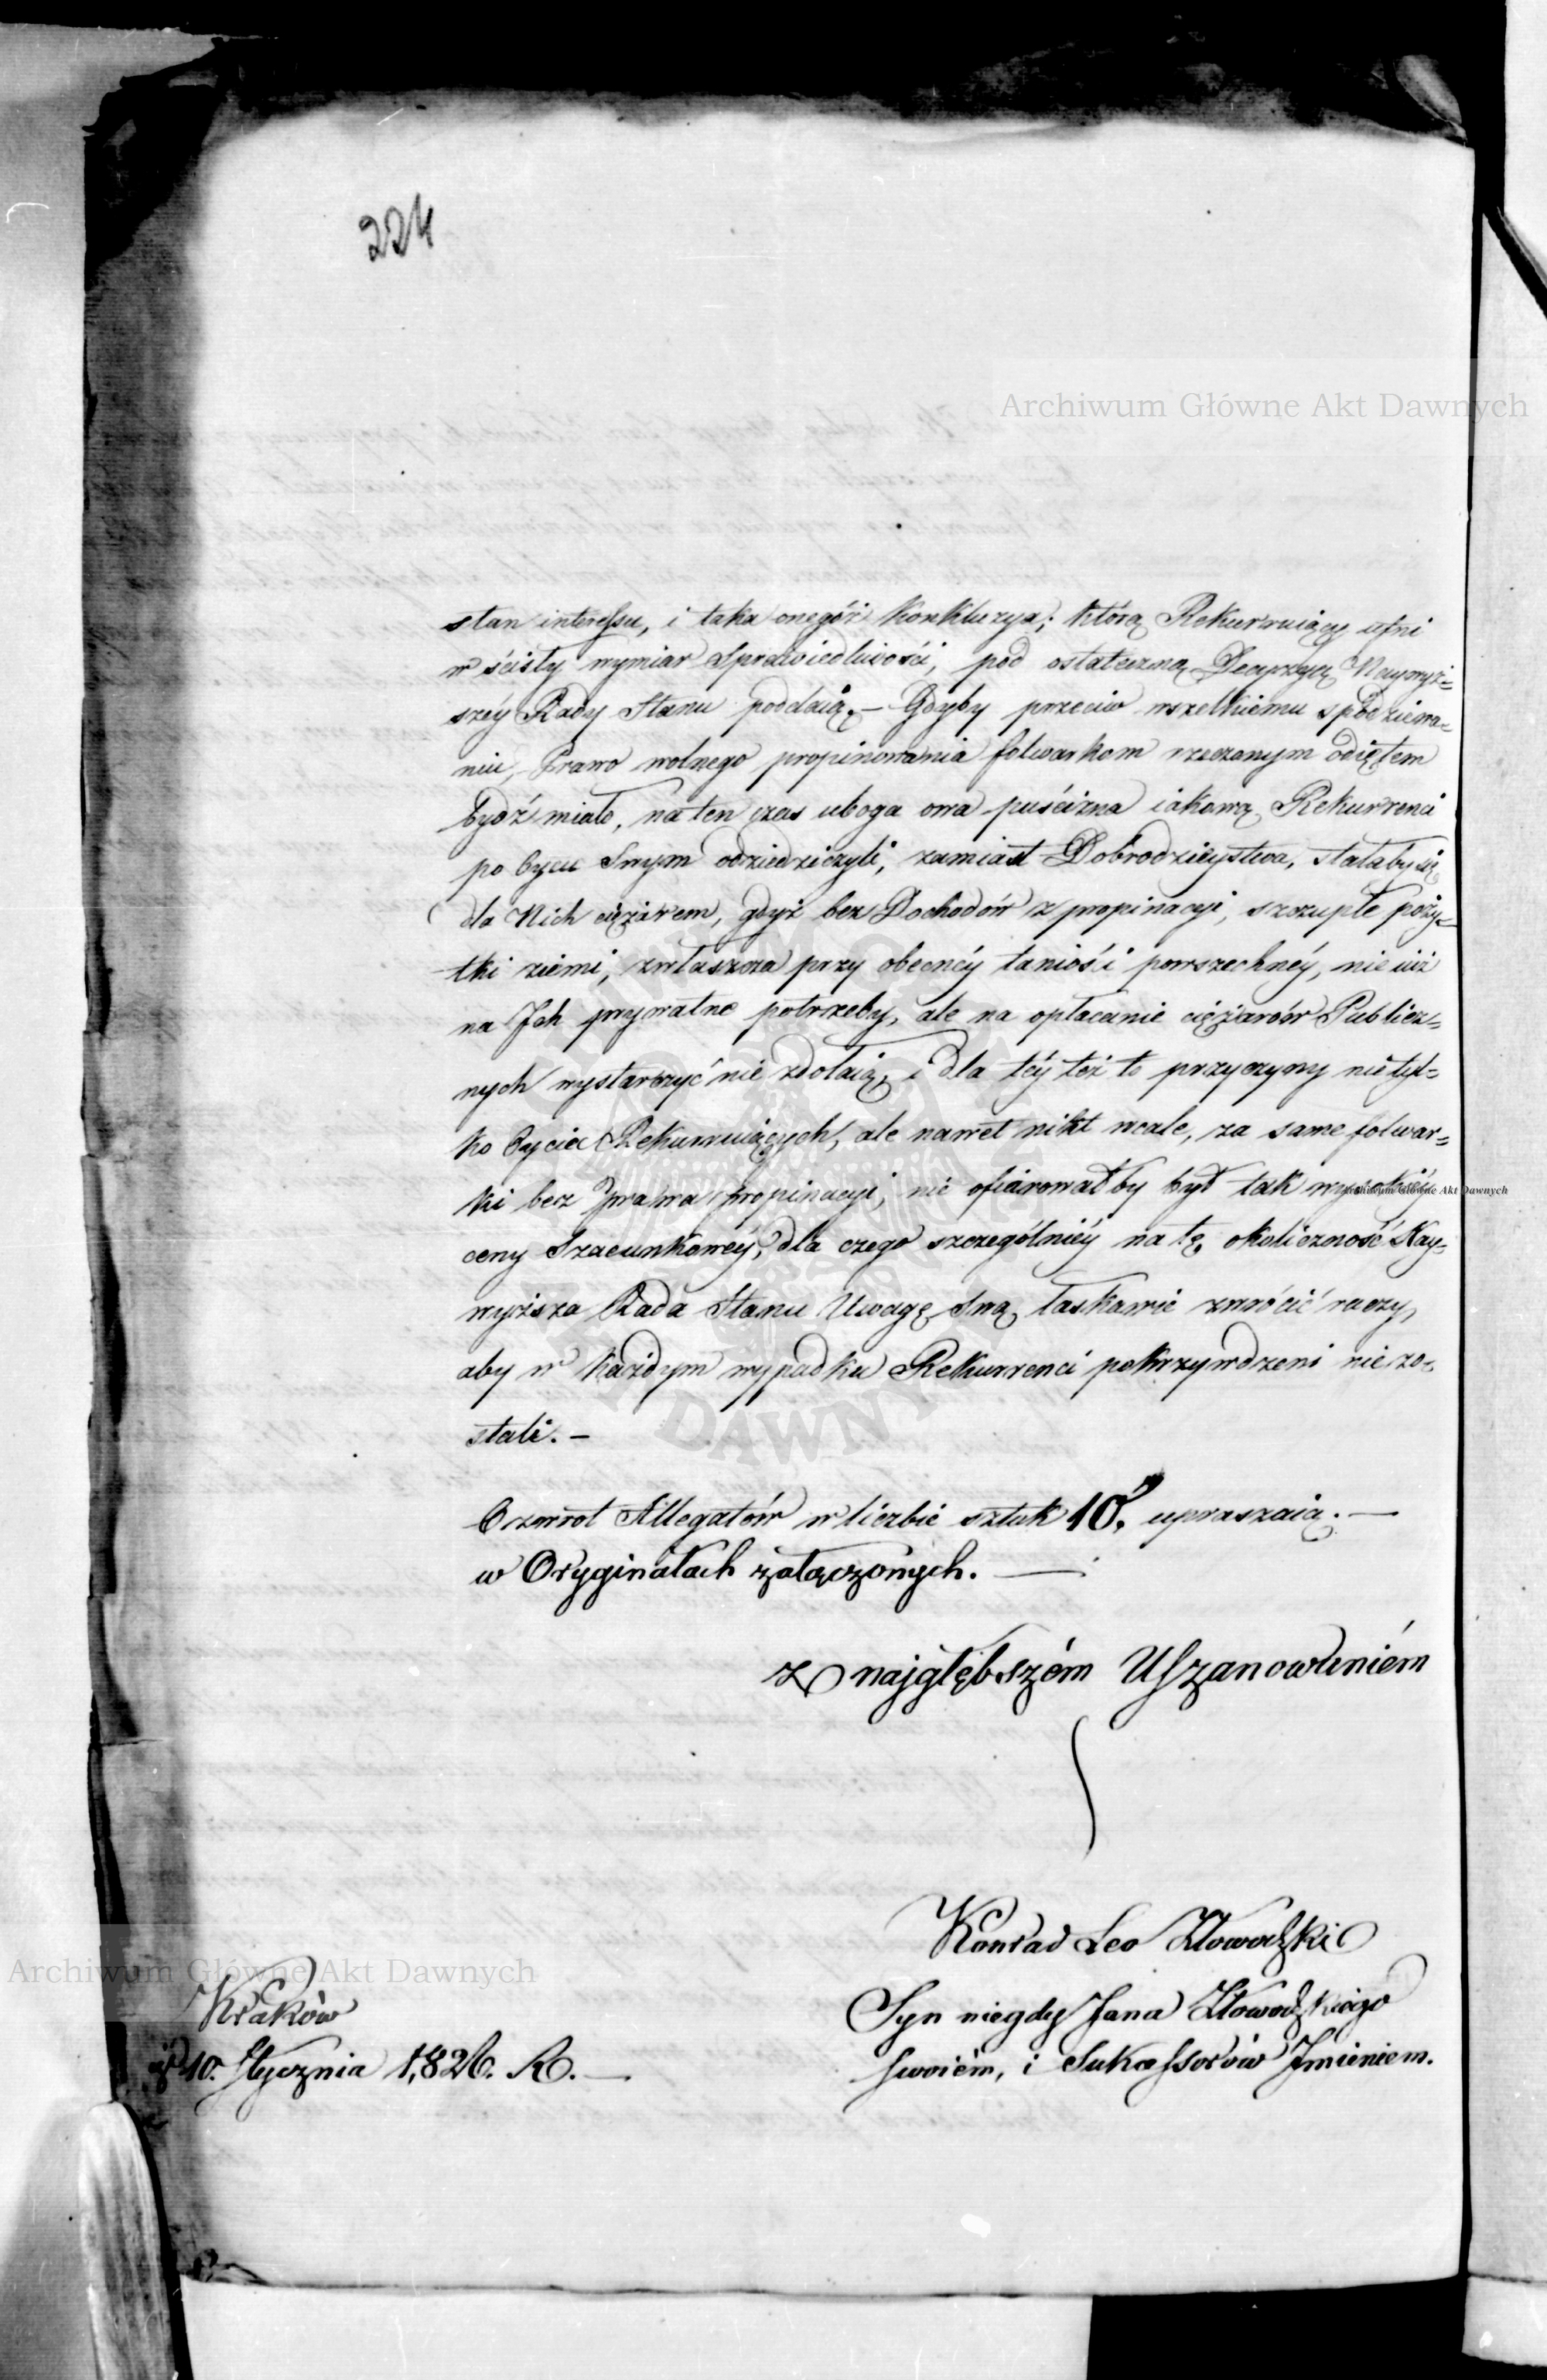 224
Archiwum Główne Akt Dawnych
stan interessu, i taka onegóż konkluzya; którą Rekurruiący ufni
w ścisły wymiar Sprawiedliwości, pod ostateczną Decyzyą Naywyż=
széy Rady Stanu poddaią. — Gdyby przeciw wszelkiemu spodziewa=
niu, Prawo wolnego propinowania folwarkom rzeczonym odiętem
bydź miało, na ten czas uboga owa puścizna iakową Rekurrenci
po Oycu Swym odziedziczyli, zamiast Dobrodzieystwa, stałaby się
dla Nich ciężarem, gdyż bez Dochodów z propinacyi, szczupłe poży=
tki ziemi, zwłaszcza przy obecnéy taniości powszechnéy, nie iuż
na Ich prywatne potrzeby, ale na opłacenie ciężarów Publicz=
nych wystarczyć nie zdołaią, i dla téy też to przyczyny nie tyl=
ko Oyciec Rekurruiących, ale nawet nikt wcale, za same folwar=
ki bez prawa propinacyi, nie ofiarowałby był tak wysokiéy
Archiwum Główne Akt Dawnych
ceny Szacunkowéy, dla czego szczególniéy na tę okoliczność Nay=
wyższa Rada Stanu Uwagę Swą łaskawie zwrócić raczy,
aby w każdym wypadku Rekurrenci pokrzywdzeni nie zo=
stali. —
O zwrot Allegatów w liczbie sztuk 10. upraszaią. —
w Oryginałach załączonych. —
z najgłębszém Uszanowaniém
Konrad Leo
Syn niegdy Jana
swoiém, i Sukcessorów Imieniem.
Archiwum Główne Akt Dawnych
Kraków
10. Stycznia 1,826. R. —
ARCHIWUM GŁÓWNE AKT DAWNYCH